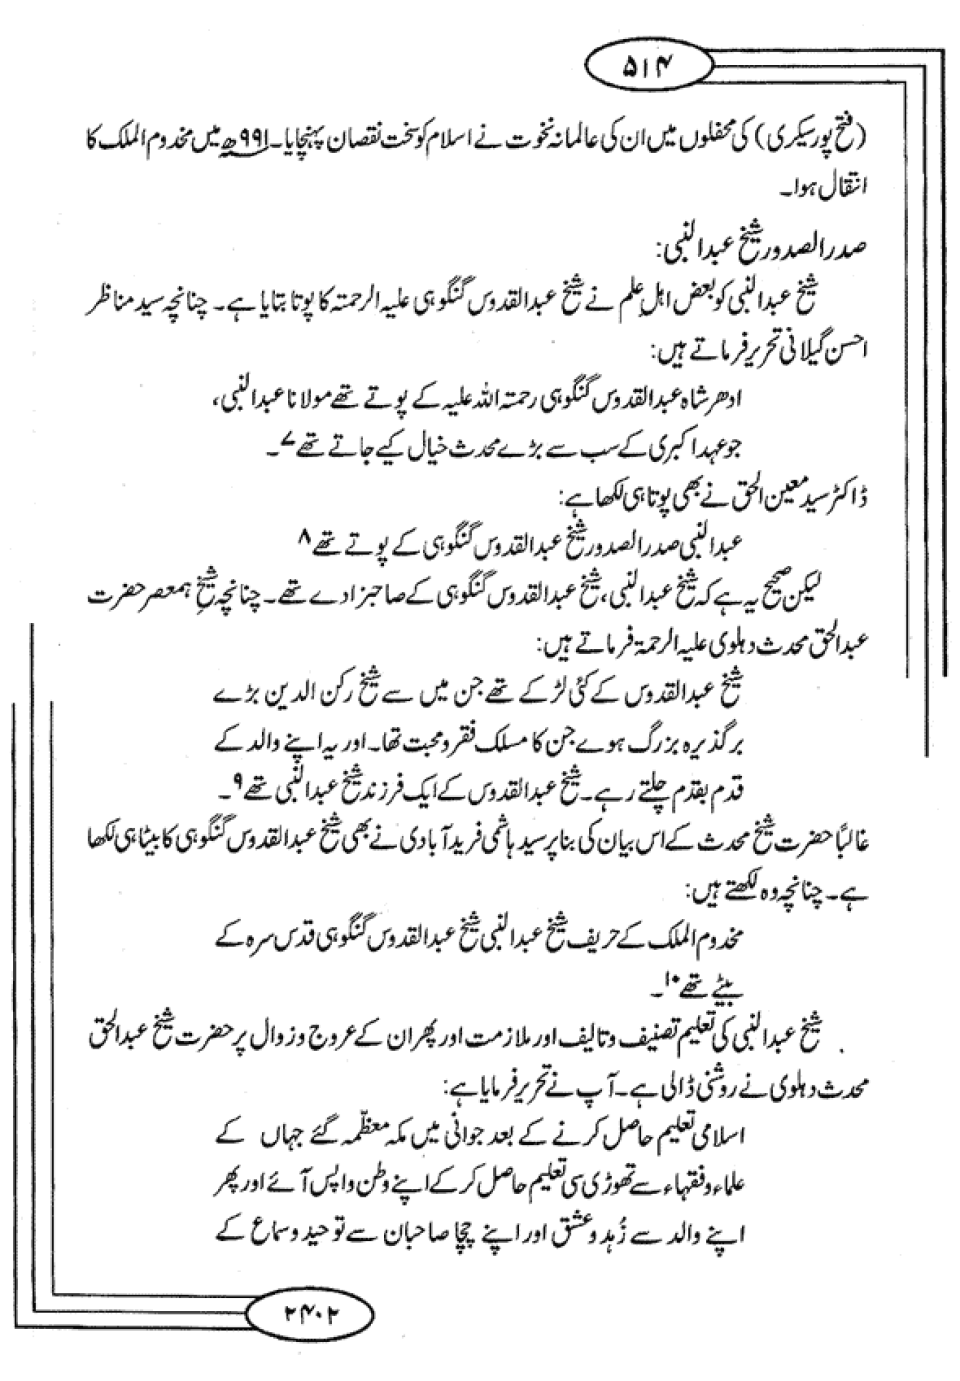 ۵۱۴
(فتح پور سیکری) کی محفلوں میں ان کی عالمانہ نخوت نے اسلام کو سخت نقصان پہنچایا۔ ۹۹۱ھ میں مخدوم الملک کا
انتقال ہوا۔
صدر الصدور شیخ عبدالنبی:
شیخ عبدالنبی کو بعض اہل علم نے شیخ عبدالقدوس گنگوہی علیہ الرحمتہ کا پوتا بتایا ہے۔ چنانچہ سید مناظر
احسن گیلانی تحریر فرماتے ہیں:
ادھر شاہ عبدالقدوس گنگوہی رحمتہ اللہ علیہ کے پوتے تھے مولانا عبدالنبی،
جو عہد اکبری کے سب سے بڑے محدث خیال کیے جاتے تھے ۷۔
ڈاکٹر سید معین الحق نے بھی پوتا ہی لکھا ہے:
عبدالنبی صدر الصدور شیخ عبدالقدوس گنگوہی کے پوتے تھے ۸
لیکن صحیح یہ ہے کہ شیخ عبدالنبی، شیخ عبدالقدوس گنگوہی کے صاحبزادے تھے۔ چنانچہ شیخ ہمعصر حضرت
عبدالحق محدث دہلوی علیہ الرحمۃ فرماتے ہیں:
شیخ عبدالقدوس کے کئی لڑکے تھے جن میں سے شیخ رکن الدین بڑے
برگذیرہ بزرگ ہوے جن کا مسلک فقر و محبت تھا۔ اور یہ اپنے والد کے
قدم بقدم چلتے رہے۔ شیخ عبدالقدوس کے ایک فرزند شیخ عبدالنبی تھے ۹۔
غالبًا حضرت شیخ محدث کے اس بیان کی بنا پر سید ہاشمی فریدآبادی نے بھی شیخ عبدالقدوس گنگوہی کا بیٹا ہی لکھا
ہے۔ چنانچہ وہ لکھتے ہیں:
مخدوم الملک کے حریف شیخ عبدالنبی شیخ عبدالقدوس گنگوہی قدس سرہ کے
بیٹے تھے ۱۰۔
شیخ عبدالنبی کی تعلیم تصنیف و تالیف اور ملازمت اور پھر ان کے عروج و زوال پر حضرت شیخ عبدالحق
محدث دہلوی نے روشنی ڈالی ہے۔ آپ نے تحریر فرمایا ہے:
اسلامی تعلیم حاصل کرنے کے بعد جوانی میں مکہ معظّمہ گئے جہاں کے
علماء و فقہاء سے تھوڑی سی تعلیم حاصل کر کے اپنے وطن واپس آئے اور پھر
اپنے والد سے زُہد و عشق اور اپنے چچا صاحبان سے توحید و سماع کے
۲۴۰۲